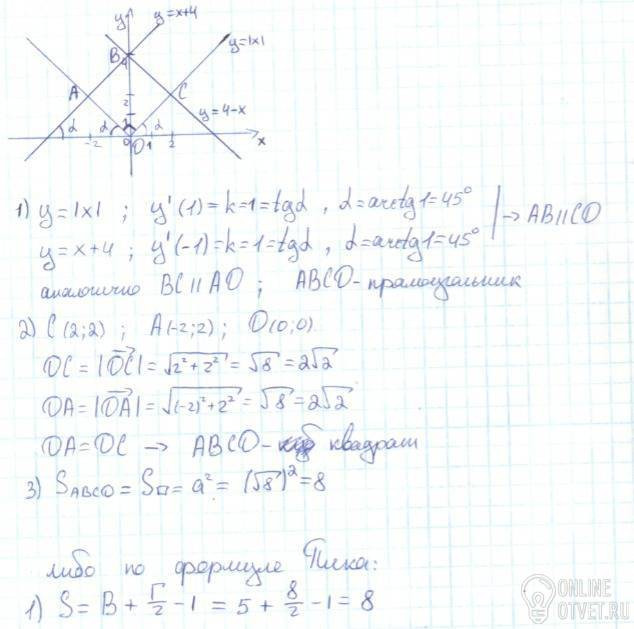 y
y=x+4
y=|x|
B
4
A
C
2
y=4-x
α
α
α
-2
0
O
1
2
x
1) y=|x| ; y'(1)=k=1=tgα, α=arctg1=45°
y=x+4; y'(-1)=k=1=tgα, α=arctg1=45°
→ AB||CO
аналогично BC||AO ; ABCO-прямоугольник
2) C(2;2) ; A(-2;2) ; O(0;0)
OC=|OC|=√2²+2²=√8=2√2
OA=|OA|=√(-2)²+2²=√8=2√2
OA=OC → ABCO- квадрат
3) SABCO=S□=a²=(√8)²=8
либо по формуле Пика:
1) S= B + Г/2 -1 = 5 + 8/2 -1 = 8
ONLINE
OTVET.RU